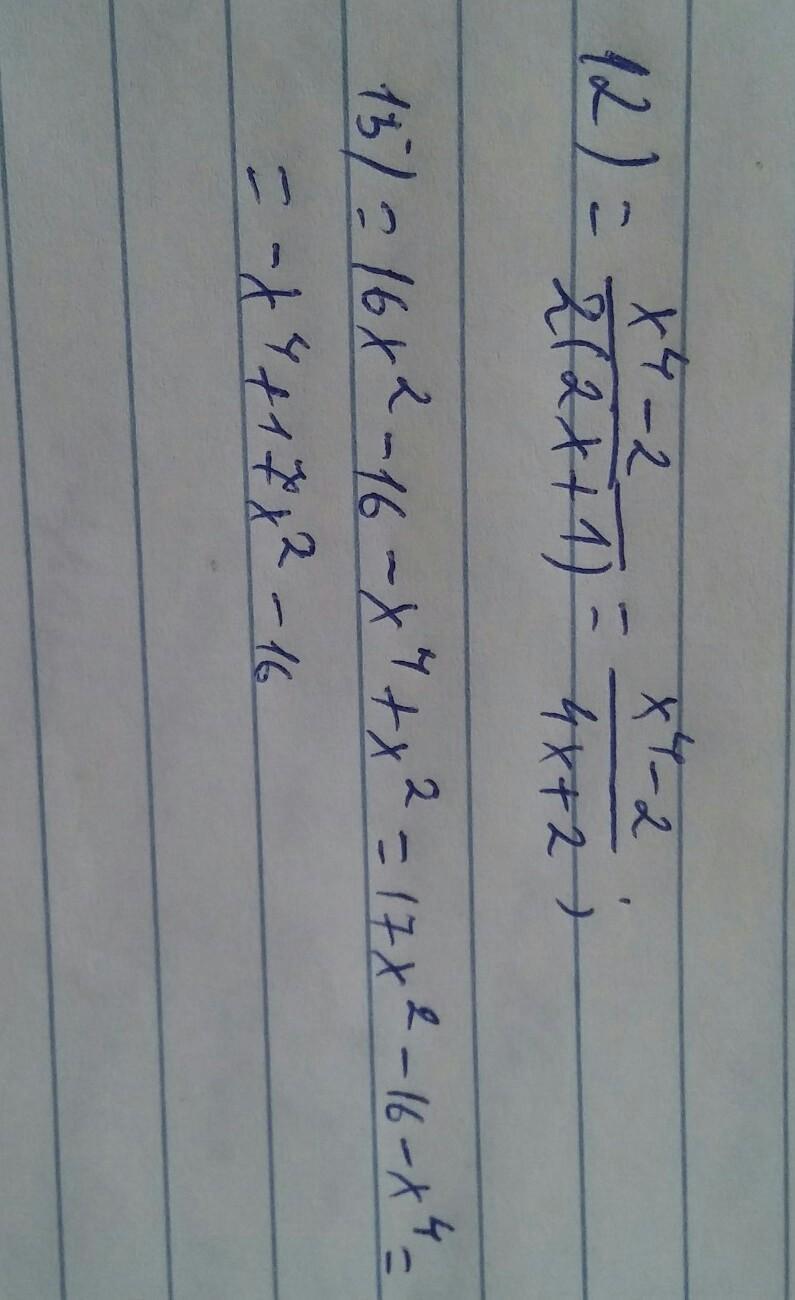 12) = x⁴-2 / 2(2x+1) = x⁴-2 / 4x+2 ;
13) = 16x² - 16 - x⁴ + x² = 17x² - 16 - x⁴ =
= -x⁴ + 17x² - 16